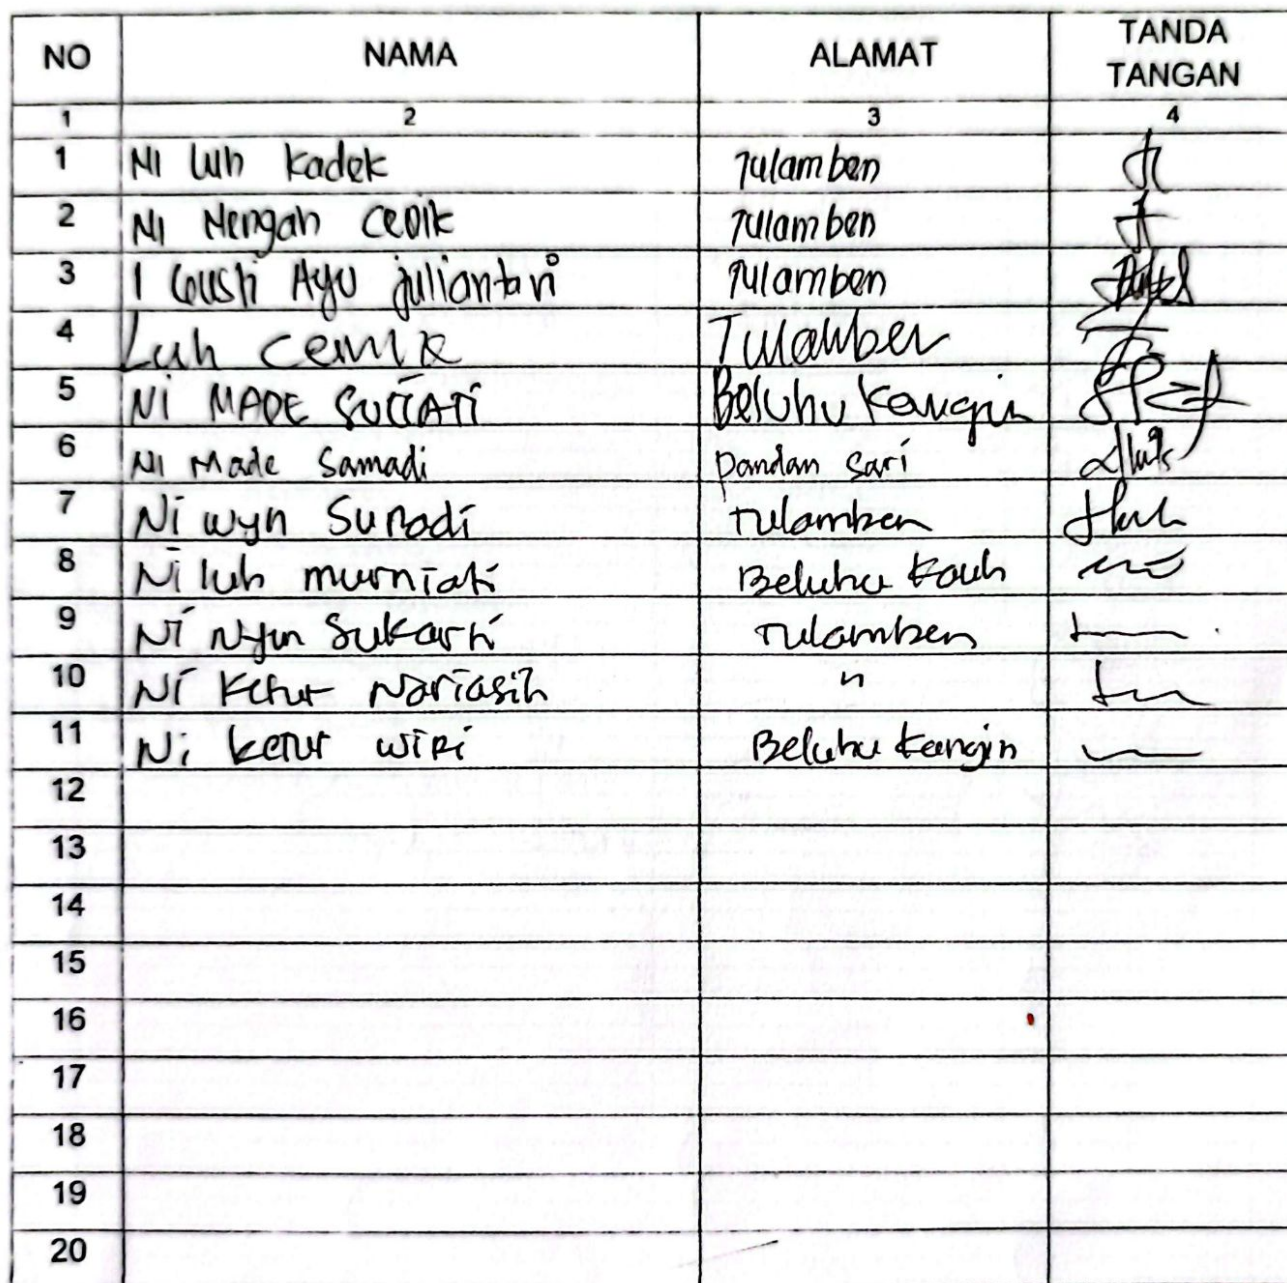 NO NAMA ALAMAT TANDA TANGAN
1 2 3 4
1 Ni Luh Kadek Tulamben
2 Ni Nengah Cenik Tulamben
3 I Gusti Ayu juliantari Tulamben
4 Luh Cenik Tulamben
5 Ni MADE SUTIATI Beluhu Kangin
6 Ni Made Samadi Pandan Sari
7 Ni wyn Suradi Tulamben
8 Ni luh murniati Beluhu Kauh
9 Ni Nym Sukarti Tulamben
10 Ni Ketut Nariasih "
11 Ni Ketut wiri Beluhu Kangin
12
13
14
15
16
17
18
19
20